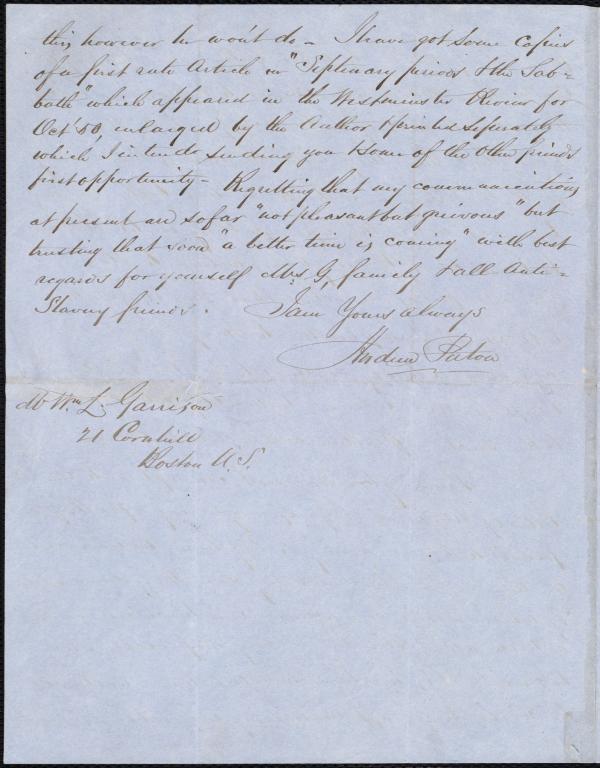 this however he won't do – I have got some copies
of a first rate Article on "Septenary periods & the Sab=
bath" which appeared in the Westminster Review for
Oct '50, enlarged by the Author & printed seperately
which I intend sending you & some of the other friends
first opportunity – Regretting that my communications
at present are so far "not pleasant but grievous" but
trusting that soon "a better time is coming" with best
regards for yourself Mrs G, family & all Anti=
Slavery friends. I am Yours always
Andrew Paton
Mr Wm L. Garrison
21 Cornhill
Boston U.S.